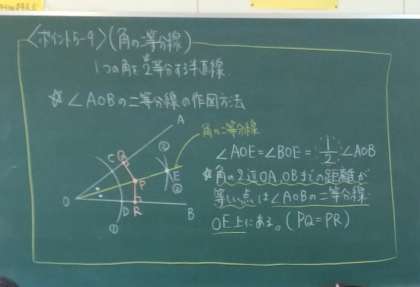 〈ポイント5-9〉(角の二等分線)
1つの角を2等分する半直線.
☆ ∠AOBの二等分線の作図方法
A
角の二等分線
C
Q
②
E
P
②
O
D
R
B
①
∠AOE=∠BOE=1/2∠AOB
☆角の2辺OA,OBまでの距離が
等しい点は∠AOBの二等分線
OE上にある。(PQ=PR)